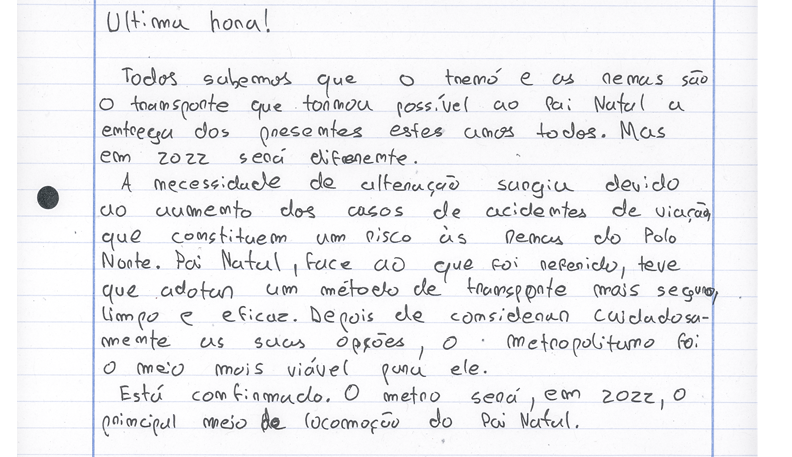 Ultima hora!
Todos sabemos que o trenó e as renas são
o transporte que tornou possível ao Pai Natal a
entrega dos presentes estes anos todos. Mas
em 2022 será diferente.
A necessidade de alteração surgiu devido
ao aumento dos casos de acidentes de viação,
que constituem um risco às renas do Polo
Norte. Pai Natal, face ao que foi referido, teve
que adotar um método de transporte mais seguro,
limpo e eficaz. Depois de considerar cuidadosa-
mente as suas opções, o metropolitano foi
o meio mais viável para ele.
Está confirmado. O metro será, em 2022, o
principal meio de locomoção do Pai Natal.